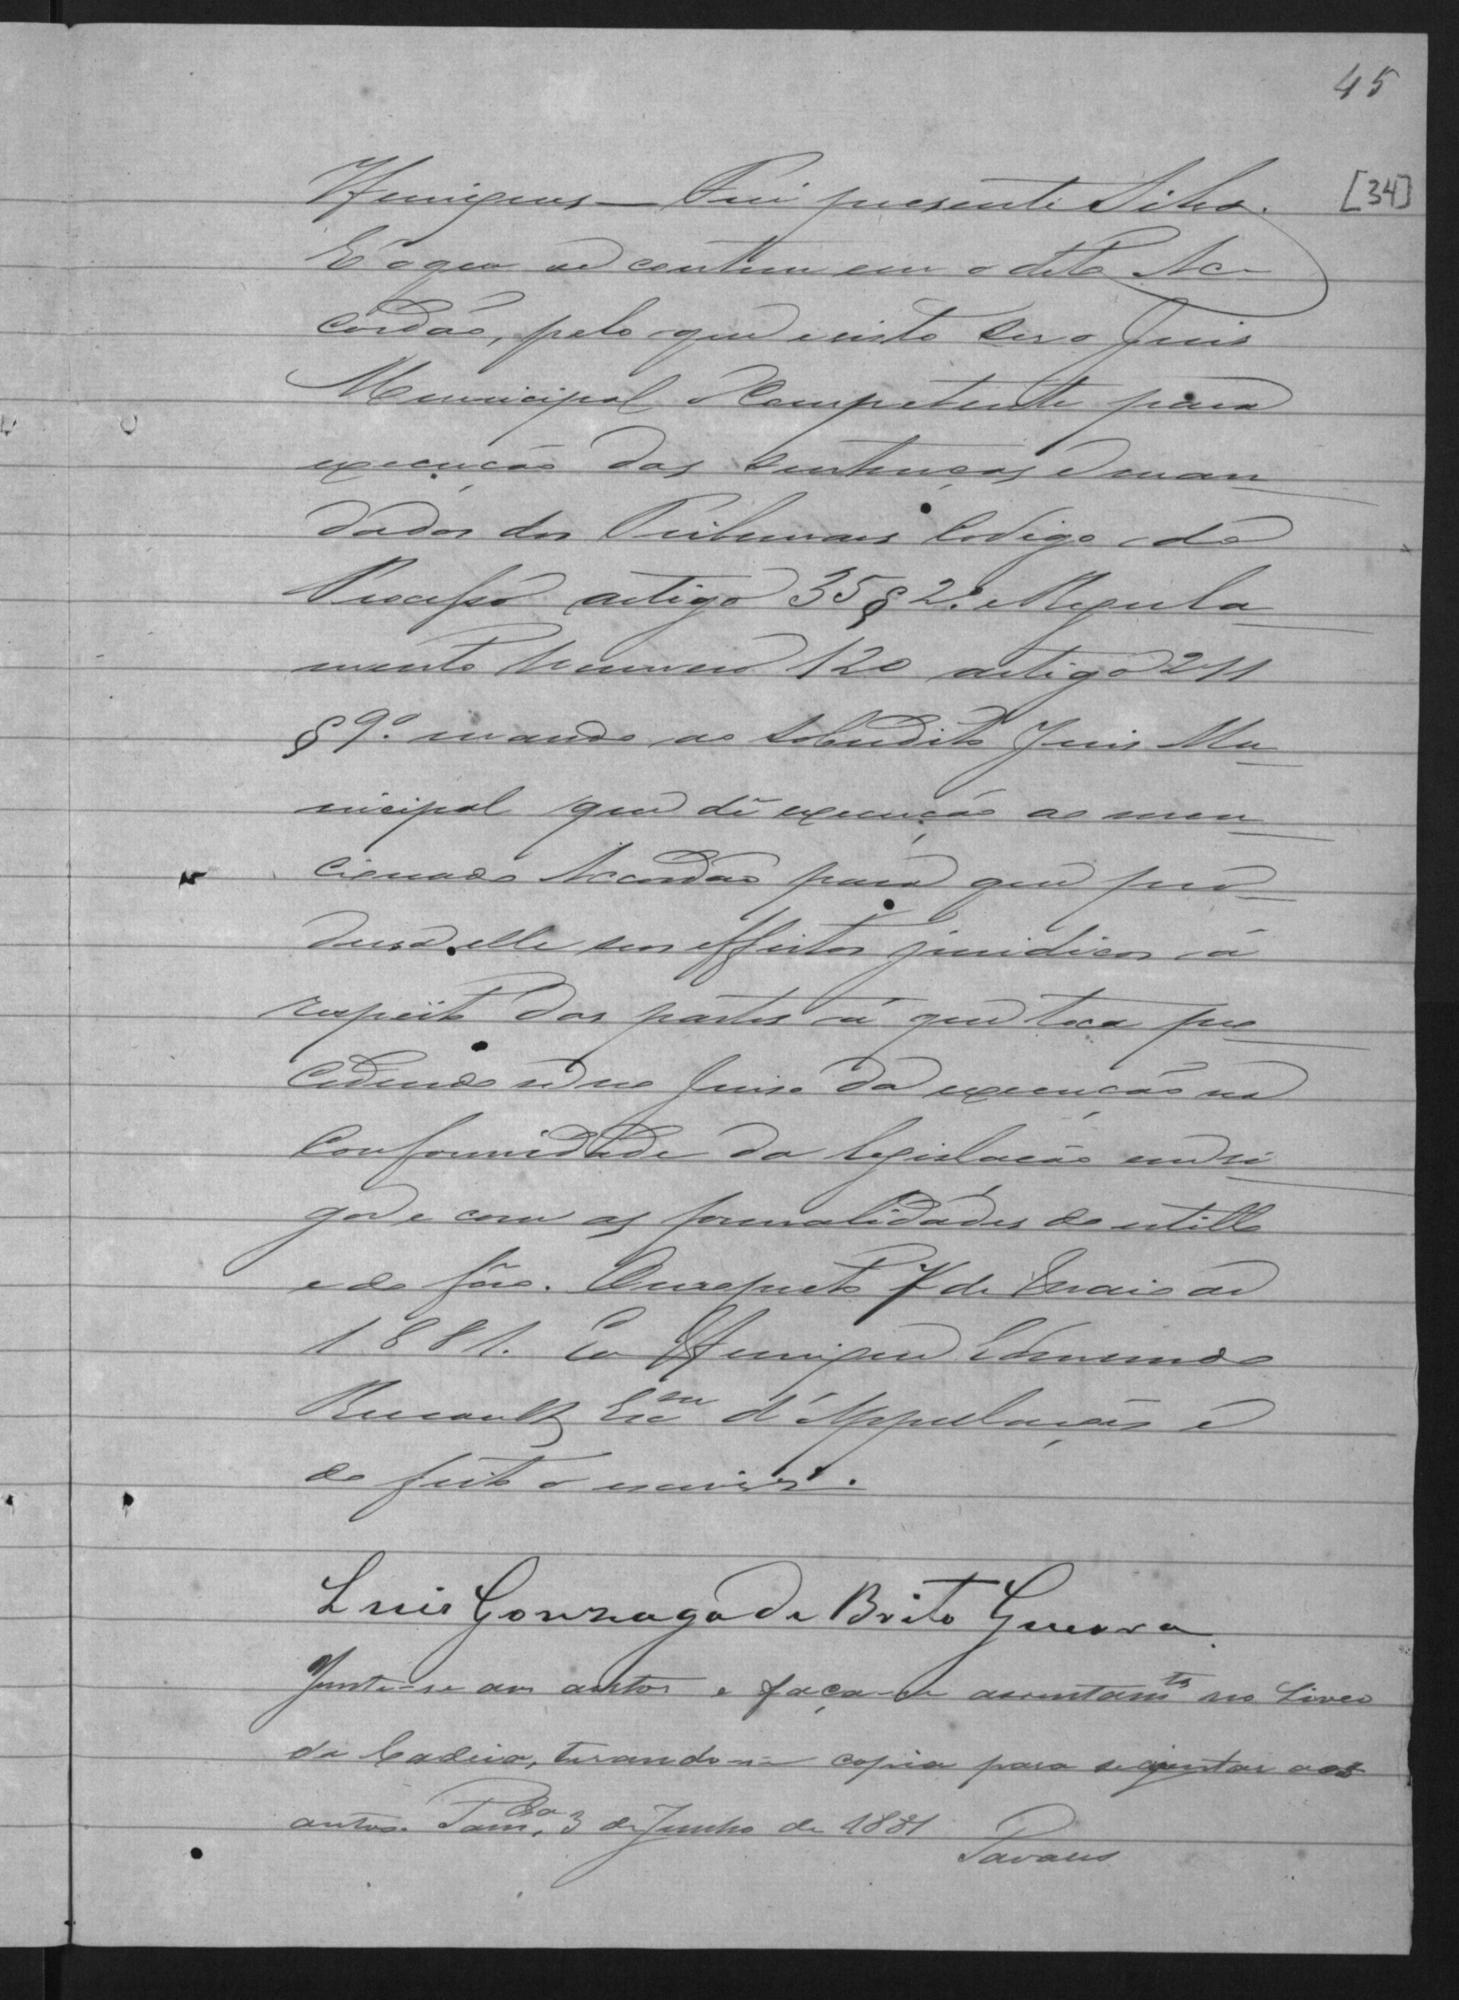 45
[34]
Henriques — Fui presente Silva.
E o que se contem em o dito Ac-
cordão, pelo que e visto ser o Juis
Municipal Competente para
execução das Sentenças e man
dados dos Tribunais Codigo do
Processo artigo 35 § 2º. e Regula
mento Numero 120 artigo 211
§ 9º. mando ao sobredito Juis Mu
nicipal que dê execução ao men
cionado Accordão para que pro
dusa elle seus effeitos juridicos á
respeito das partes á que toca pro
cedendo se no Juiso da execução na
Conformidade da legislação em vi
gor e com as formalidades do estillo
e do fôro. Ouro preto 7 de Maio de
1881. Eu Henrique Edmundo
Renault Escm d'Appelações e
do feito o escrivi.
Luis Gonzaga de Brito Guerra
Junte-se aos autos e faça-se assentamto no Livro
da Cadeia, tirando-se copia para se juntar aos
autos. Pam.ba, 3 de Junho de 1881
Tavares